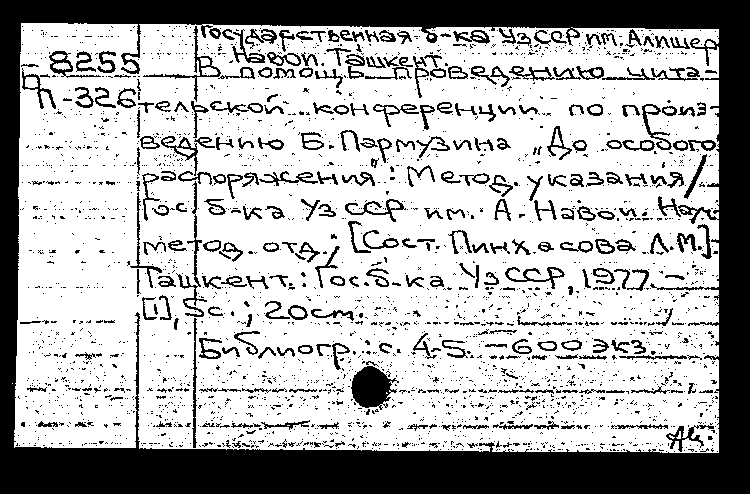 Государственная б-ка УзССР им. Алишер
Навои. Ташкент.
- 8255
П-326
В помощь проведению чита-
тельской конференции по произ-
ведению Б. Пармузина „До особого
распоряжения": Метод. указания /
Гос. б-ка УзССР им. А. Навои. Науч.
метод. отд.; [Сост. Пинхасова Л.М.].
Ташкент.: Гос. б-ка УзССР, 1977. -
[1], 5с.; 20см.
Библиогр.: с. 4-5. - 600 экз.